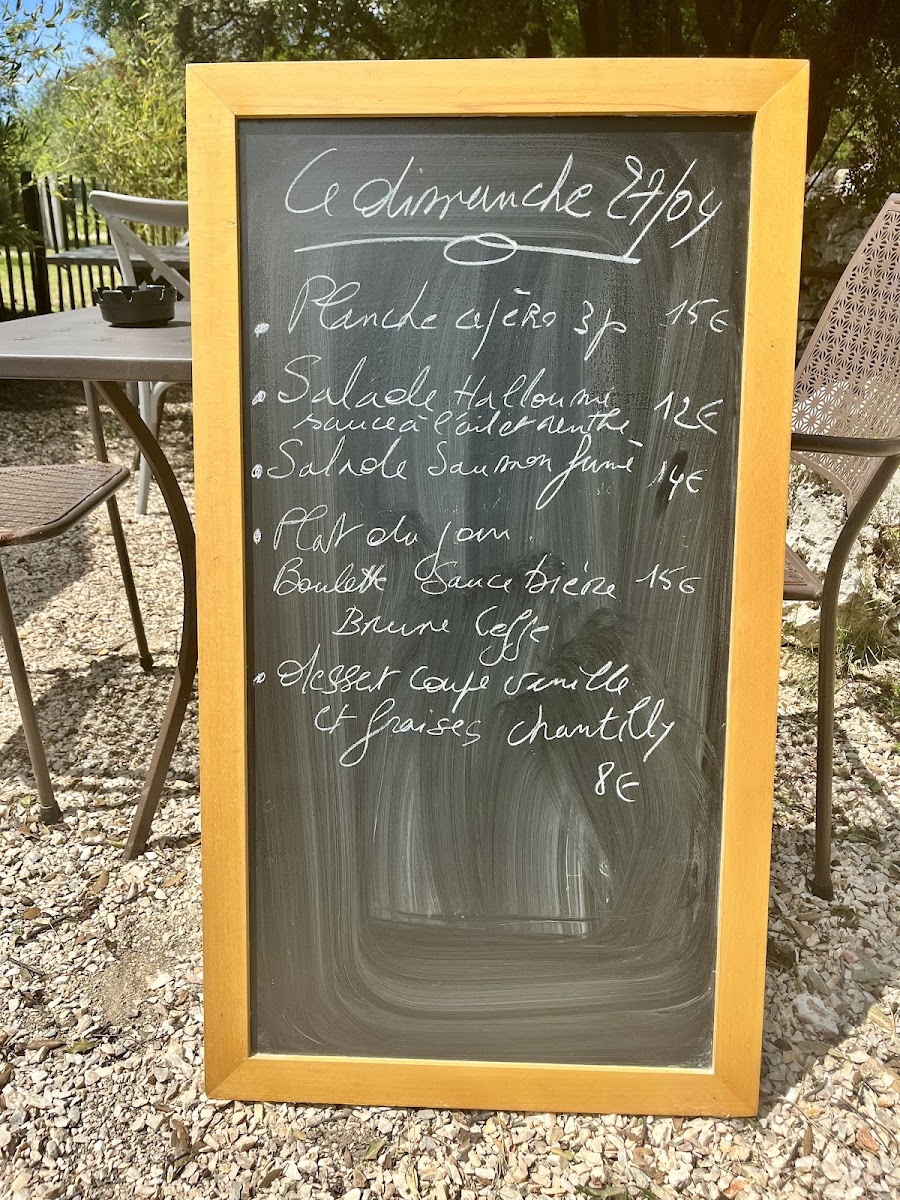 Ce dimanche 27/04
• Planche apéro 3p 15€
• Salade Halloumi
sauce à l'ail et menthe 12€
• Salade Saumon fumé 14€
• Plat du jour
Boulette Sauce bière 15€
Brune Leffe
• dessert coupe vanille
et fraises chantilly
8€